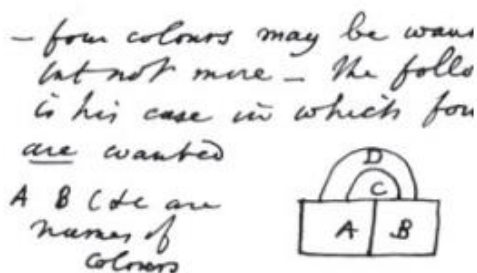 – four colours may be wan
but not more – the follo
is his case in which fou
are wanted
D
C
A B C &c are
A B
names of
colours